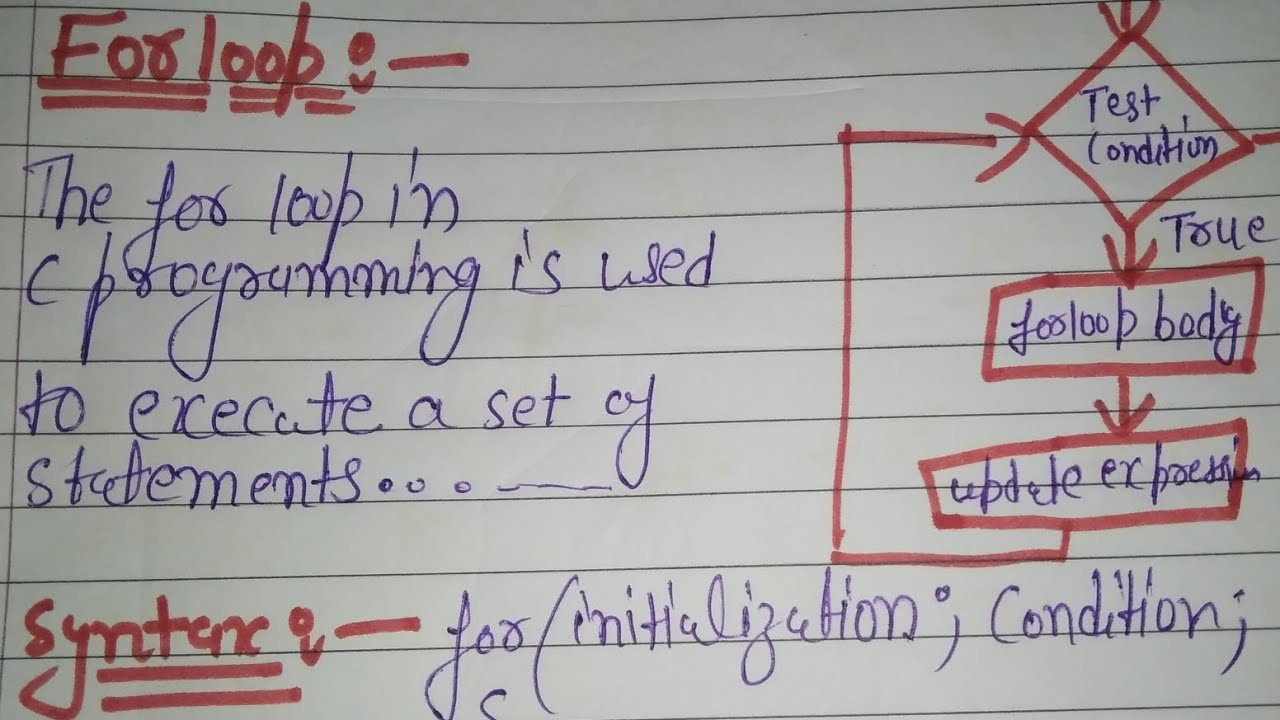 For loop :-
The for loop in
C programming is used
to execute a set of
statements...
Syntax :- for (initialization; Condition;
Test
Condition
True
for loop body
update expression